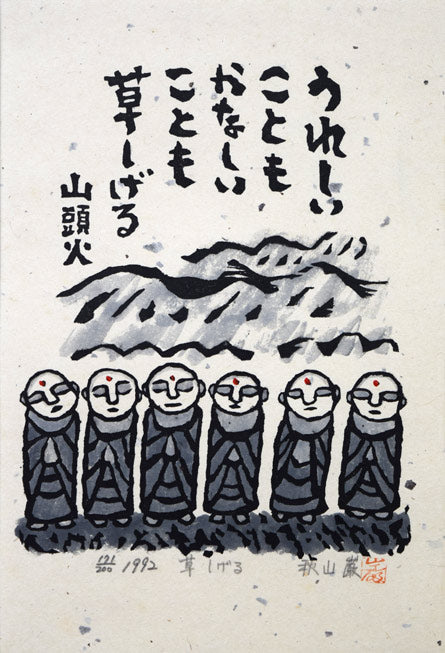 うれしい
ことも
かなしい
ことも
草しげる
山頭火
1992 草しげる 秋山巌